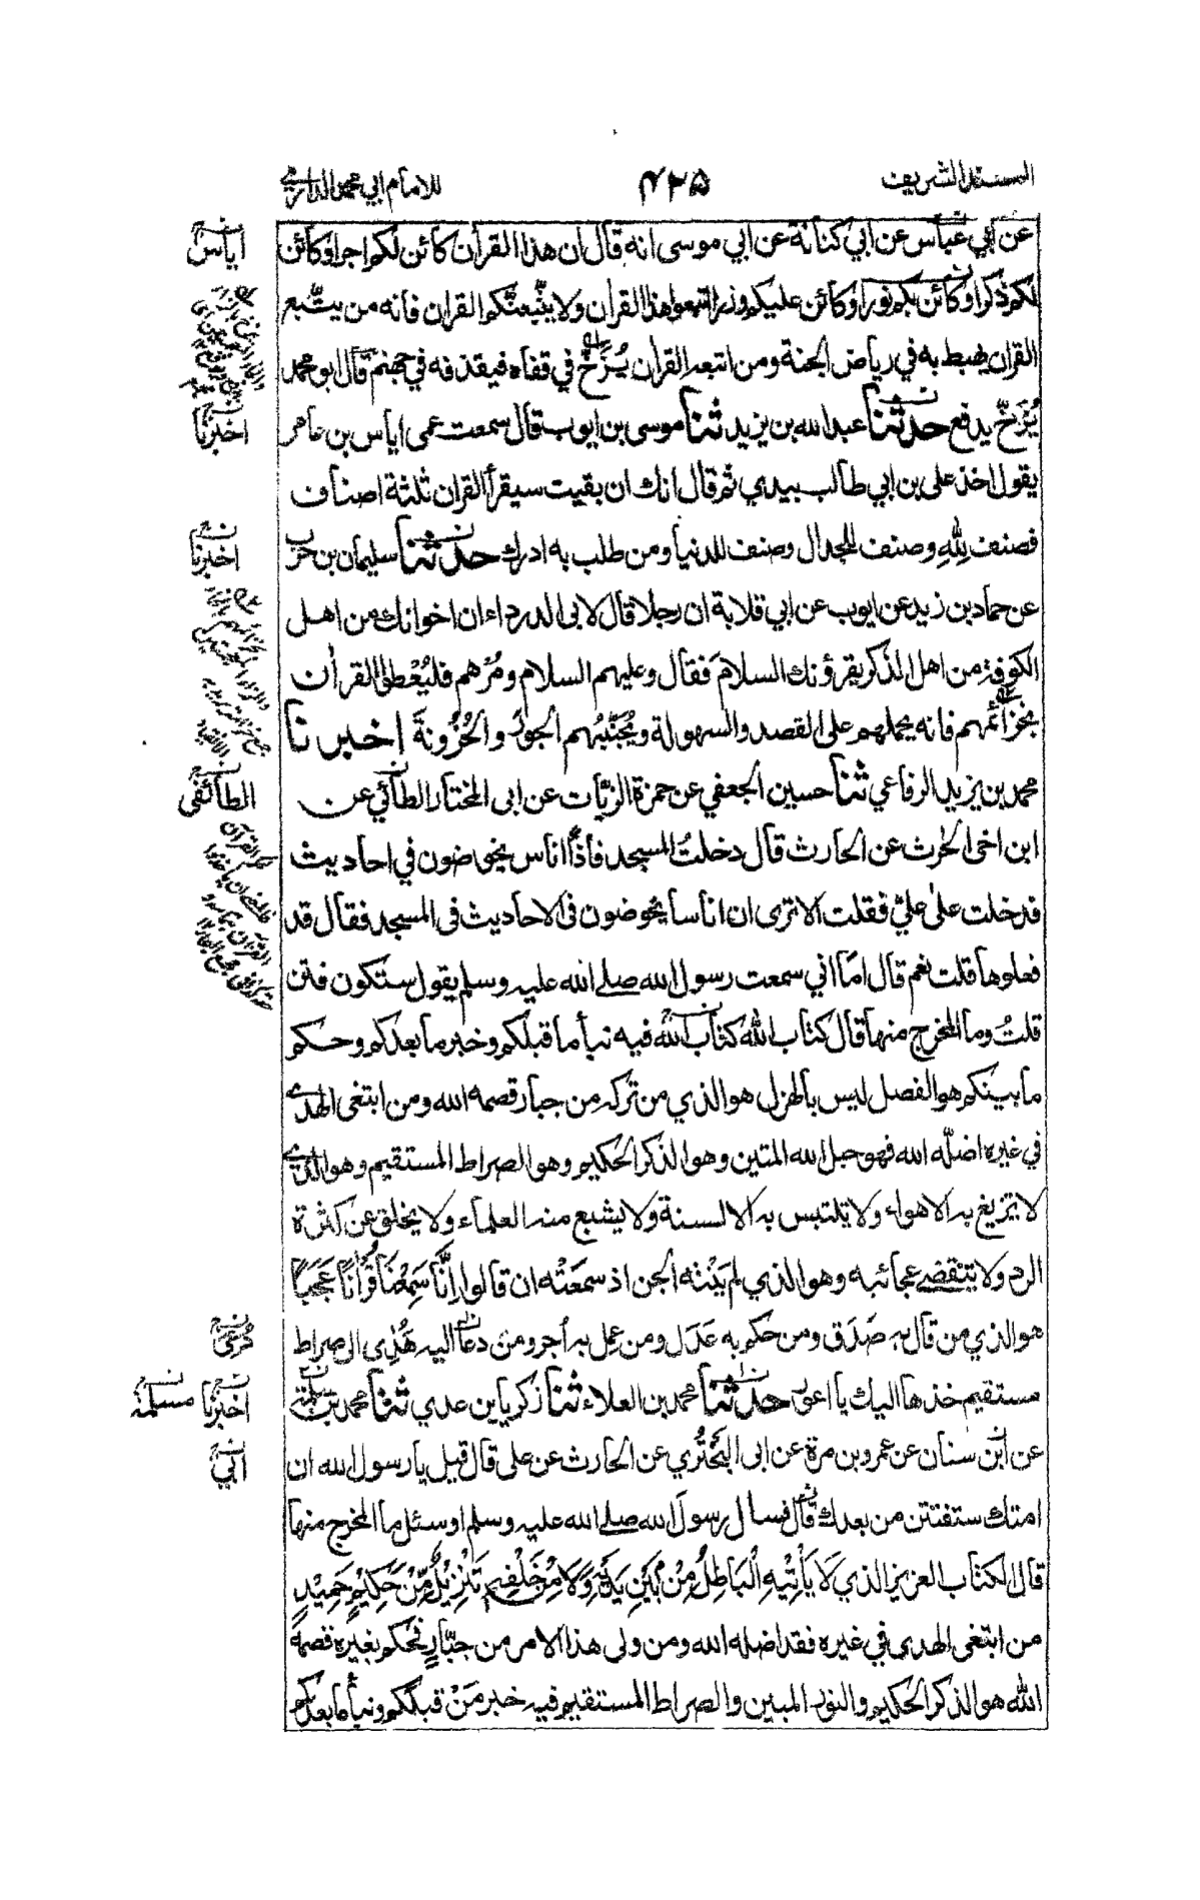 المسند الشريف
٤٢٥
للامام ابي محمد الدارمي
عن ابي عباس عن ابي كنانة عن ابي موسى انه قال ان هذا القرآن كائن لكم اجرا وكائن
لكم ذكرا وكائن بكم نورا وكائن عليكم وزرا اتبعوا هذا القرآن ولا يتّبعنّكم القرآن فانه من يتّبع
القرآن يهبط به في رياض الجنة ومن اتبعه القرآن يُزخّ في قفاه فيقذفه في جهنم قال ابو محمد
يُزخّ يدفع حدثنا عبد الله بن يزيد ثنا موسى بن ايوب قال سمعت عمى اياس بن عامر
يقول اخذ على بن ابي طالب بيدي ثم قال انك ان بقيت سيقرأ القرآن ثلثة اصناف
فصنف لِلّٰهِ وصنف للجدال وصنف للدنيا ومن طلب به ادرك حدثنا سليمان بن حرب
عن حماد بن زيد عن ايوب عن ابي قلابة ان رجلا قال لابى الدرداء ان اخوانك من اهل
الكوفة من اهل الذكر يقرؤنك السلامَ فقال وعليهم السلام ومُرْهم فليُعْطوا القرآن
بخزائمهم فانه يحملهم على القصد والسهولة ويُجَنِّبُهم الجورَ والحُزُونةَ اخبرنا
محمد بن يزيد الرفاعي ثنا حسين الجعفي عن حمزة الزيّات عن ابى المختار الطائي عن
ابن اخى الحٰرث عن الحارث قال دخلتُ المسجد فاذا اناس يخوضون في احاديث
فدخلت على عليٍّ فقلت الا ترى ان اناسا يخوضون فى الاحاديث فى المسجد فقال قد
فعلوها قلت نعم قال امَا اني سمعت رسول الله صلى الله عليه وسلم يقول ستكون فتن
قلتُ وما المخرج منها قال كتاب الله كتاب الله فيه نبأ ما قبلكم وخبر ما بعدكم وحكم
ما بينكم هو الفصل ليس بالهزل هو الذي من تركه من جبار قصمه الله ومن ابتغى الهدى
في غيره اضلّه الله فهو حبل الله المتين وهو الذكر الحكيم وهو الصراط المستقيم وهو الذى
لا تزيغ به الاهواء ولا تلتبس به الالسنة ولا يشبع منه العلماء ولا يخلق عن كثرة
الرد ولا تنقضى عجائبه وهو الذي لم يَنْته الجن اذ سمعَتْه ان قالوا اِنَّا سَمِعْنَا قُرْاٰنًا عَجَبًا
هو الذي من قال به صَدَق ومن حكم به عَدَل ومن عمِل به أُجر ومن دعا اليه هُدِى الى صراط
مستقيم خذها اليك يا اعور حدثنا محمد بن العلاء ثنا زكريا بن عدي ثنا محمد بن سلمة
عن ابن سنان عن عمرو بن مرة عن ابى البَخْتَري عن الحارث عن على قال قيل يا رسول الله ان
امتك ستفتتن من بعدك قال فسال رسولَ الله صلى الله عليه وسلم او سئل ما المخرج منها
قال الكتاب العزيز الذي لَا يَأْتِيْهِ الْبَاطِلُ مِنْ بَيْنِ يَدَيْهِ وَلَا مِنْ خَلْفِهٖ تَنْزِيْلٌ مِّنْ حَكِيْمٍ حَمِيْدٍ
من ابتغى الهدى في غيره فقد اضله الله ومن ولى هذا الامر من جبّارٍ فحكم بغيره قصمه
الله هو الذكر الحكيم والنور المبين والصراط المستقيم فيه خبر مَنْ قبلكم ونبأ ما بعدكم
اياس
اخبرنا
اخبرنا
الطائفى
دُعِىَ
اخبرنا مسلمة
ابي